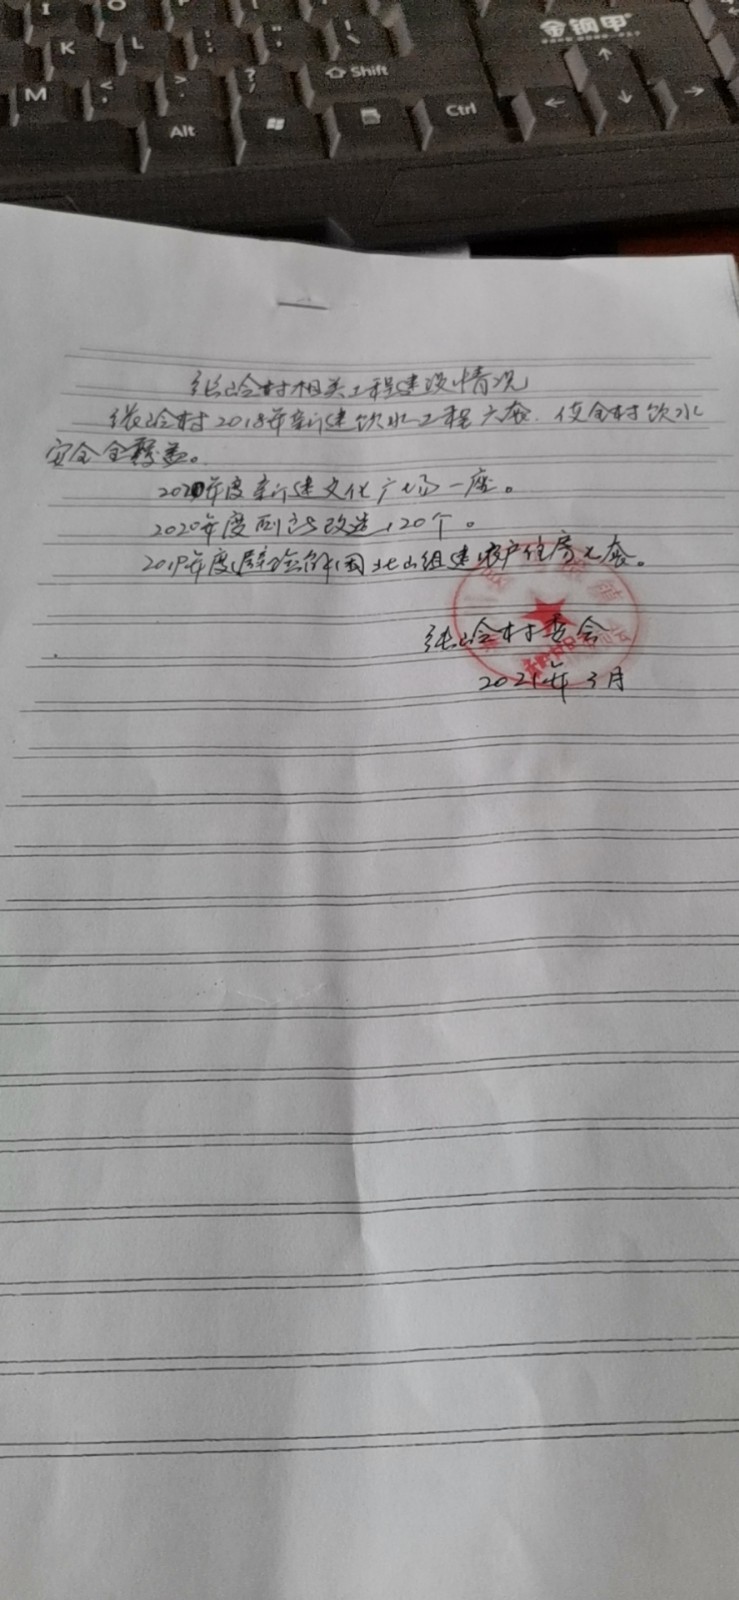 I
K
L
M
Shift
Alt
Ctrl
金钢甲
张岭村相关工程建设情况
张岭村2018年新建饮水工程六套.使全村饮水
安全全覆盖。
2020年度新建文化广场一座。
2020年度厕所改造120个。
2019年度避险 北山组建农户住房七套。
张岭村委会
2021年3月